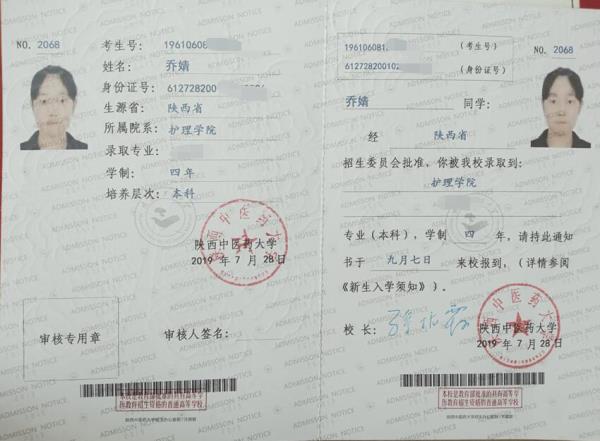 NO. 2068
考生号: 19610608
姓名: 乔婧
身份证号: 612728200
生源省: 陕西省
所属院系: 护理学院
录取专业:
学制: 四年
培养层次: 本科
陕西中医药大学
2019 年 7 月 28 日
审核专用章
审核人签名:
本校是教育部批准的具有高等学
历教育招生资格的普通高等学校
196106081 (考生号)
61272820010 (身份证号)
NO. 2068
乔婧 同学:
经 陕西省
招生委员会批准,你被我校录取到:
护理学院
专业(本科),学制 四 年,请持此通知
书于 九月七日 来校报到,(详情参阅
《新生入学须知》)。
校 长:
陕西中医药大学
2019 年 7 月 28 日
本校是教育部批准的具有高等学
历教育招生资格的普通高等学校
ADMISSION NOTICE